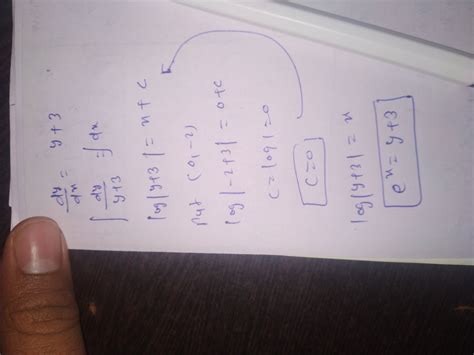 dy/dx = y+3
∫ dy/y+3 = ∫dx
log|y+3| = x+c
Put (0,-2)
log|-2+3| = 0+c
c = log1 = 0
c=0
log|y+3| = x
e^x = y+3